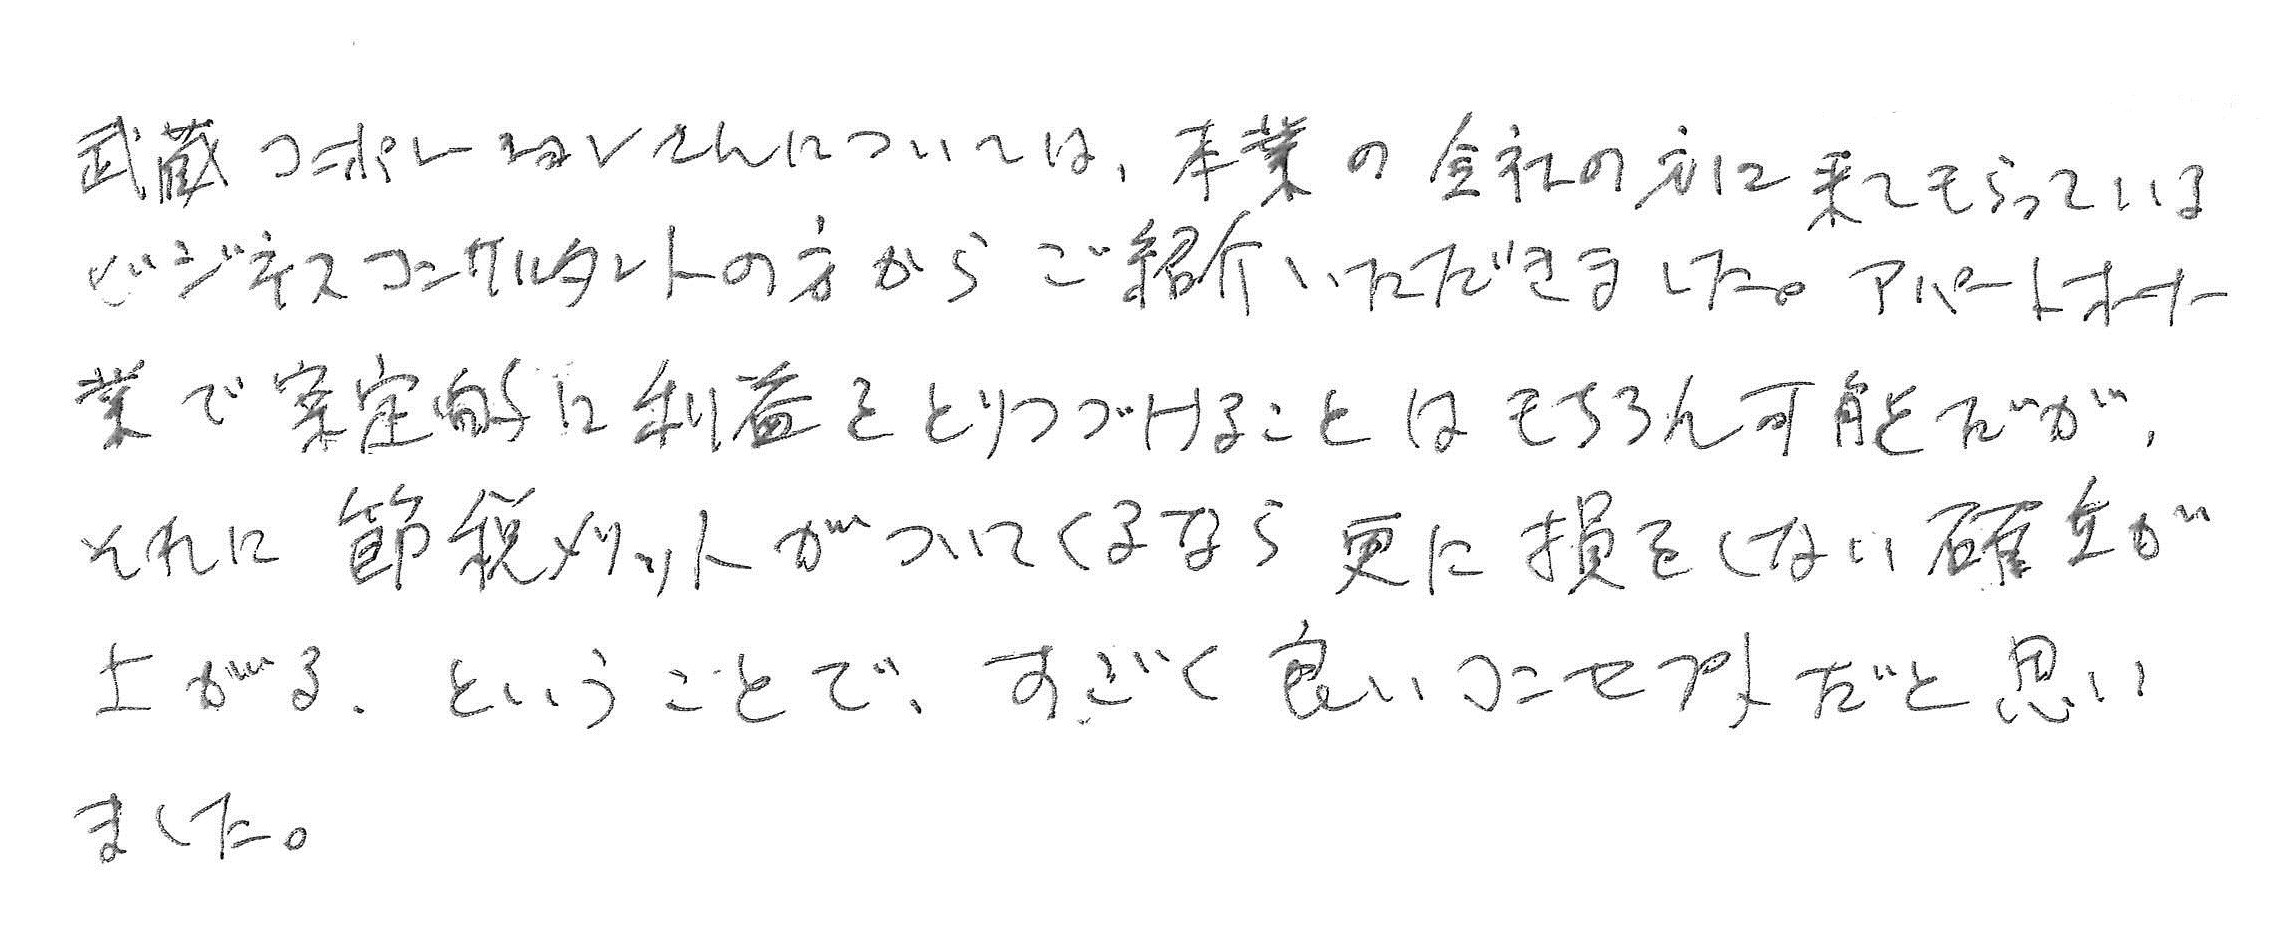 武蔵コーポレーションさんについては、本業の会社の方に来てもらっている
ビジネスコンサルタントの方からご紹介いただきました。アパートオーナー
業で安定的に利益をとりつづけることはもちろん可能だが、
それに節税メリットがついてくるなら更に損をしない確立が
上がる、ということで、すごく良いコンセプトだと思い
ました。